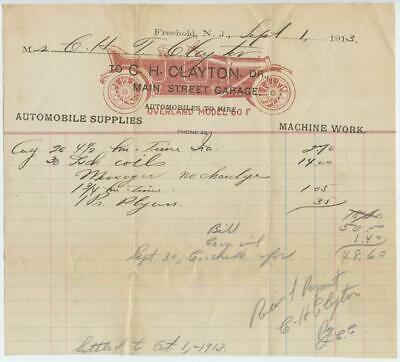 Freehold, N. J., Sept 1, 1913.
Mrs C. H. T. Clayton
TO C. H. CLAYTON, DR.
MAIN STREET GARAGE.
AUTOMOBILES TO HIRE.
OVERLAND MODEL 60 T
AUTOMOBILE SUPPLIES MACHINE WORK.
PHONE 42
Aug 26 4½ hrs time 2 70
30 coils 14 00
no charge
1¾ hrs time 1 05
1 Pr. Plyers 35
Bill 50.00
1.40
Sept 30, Cr. check for 48.60
Received Payment
C. H. Clayton
settled to Oct 1, 1913.